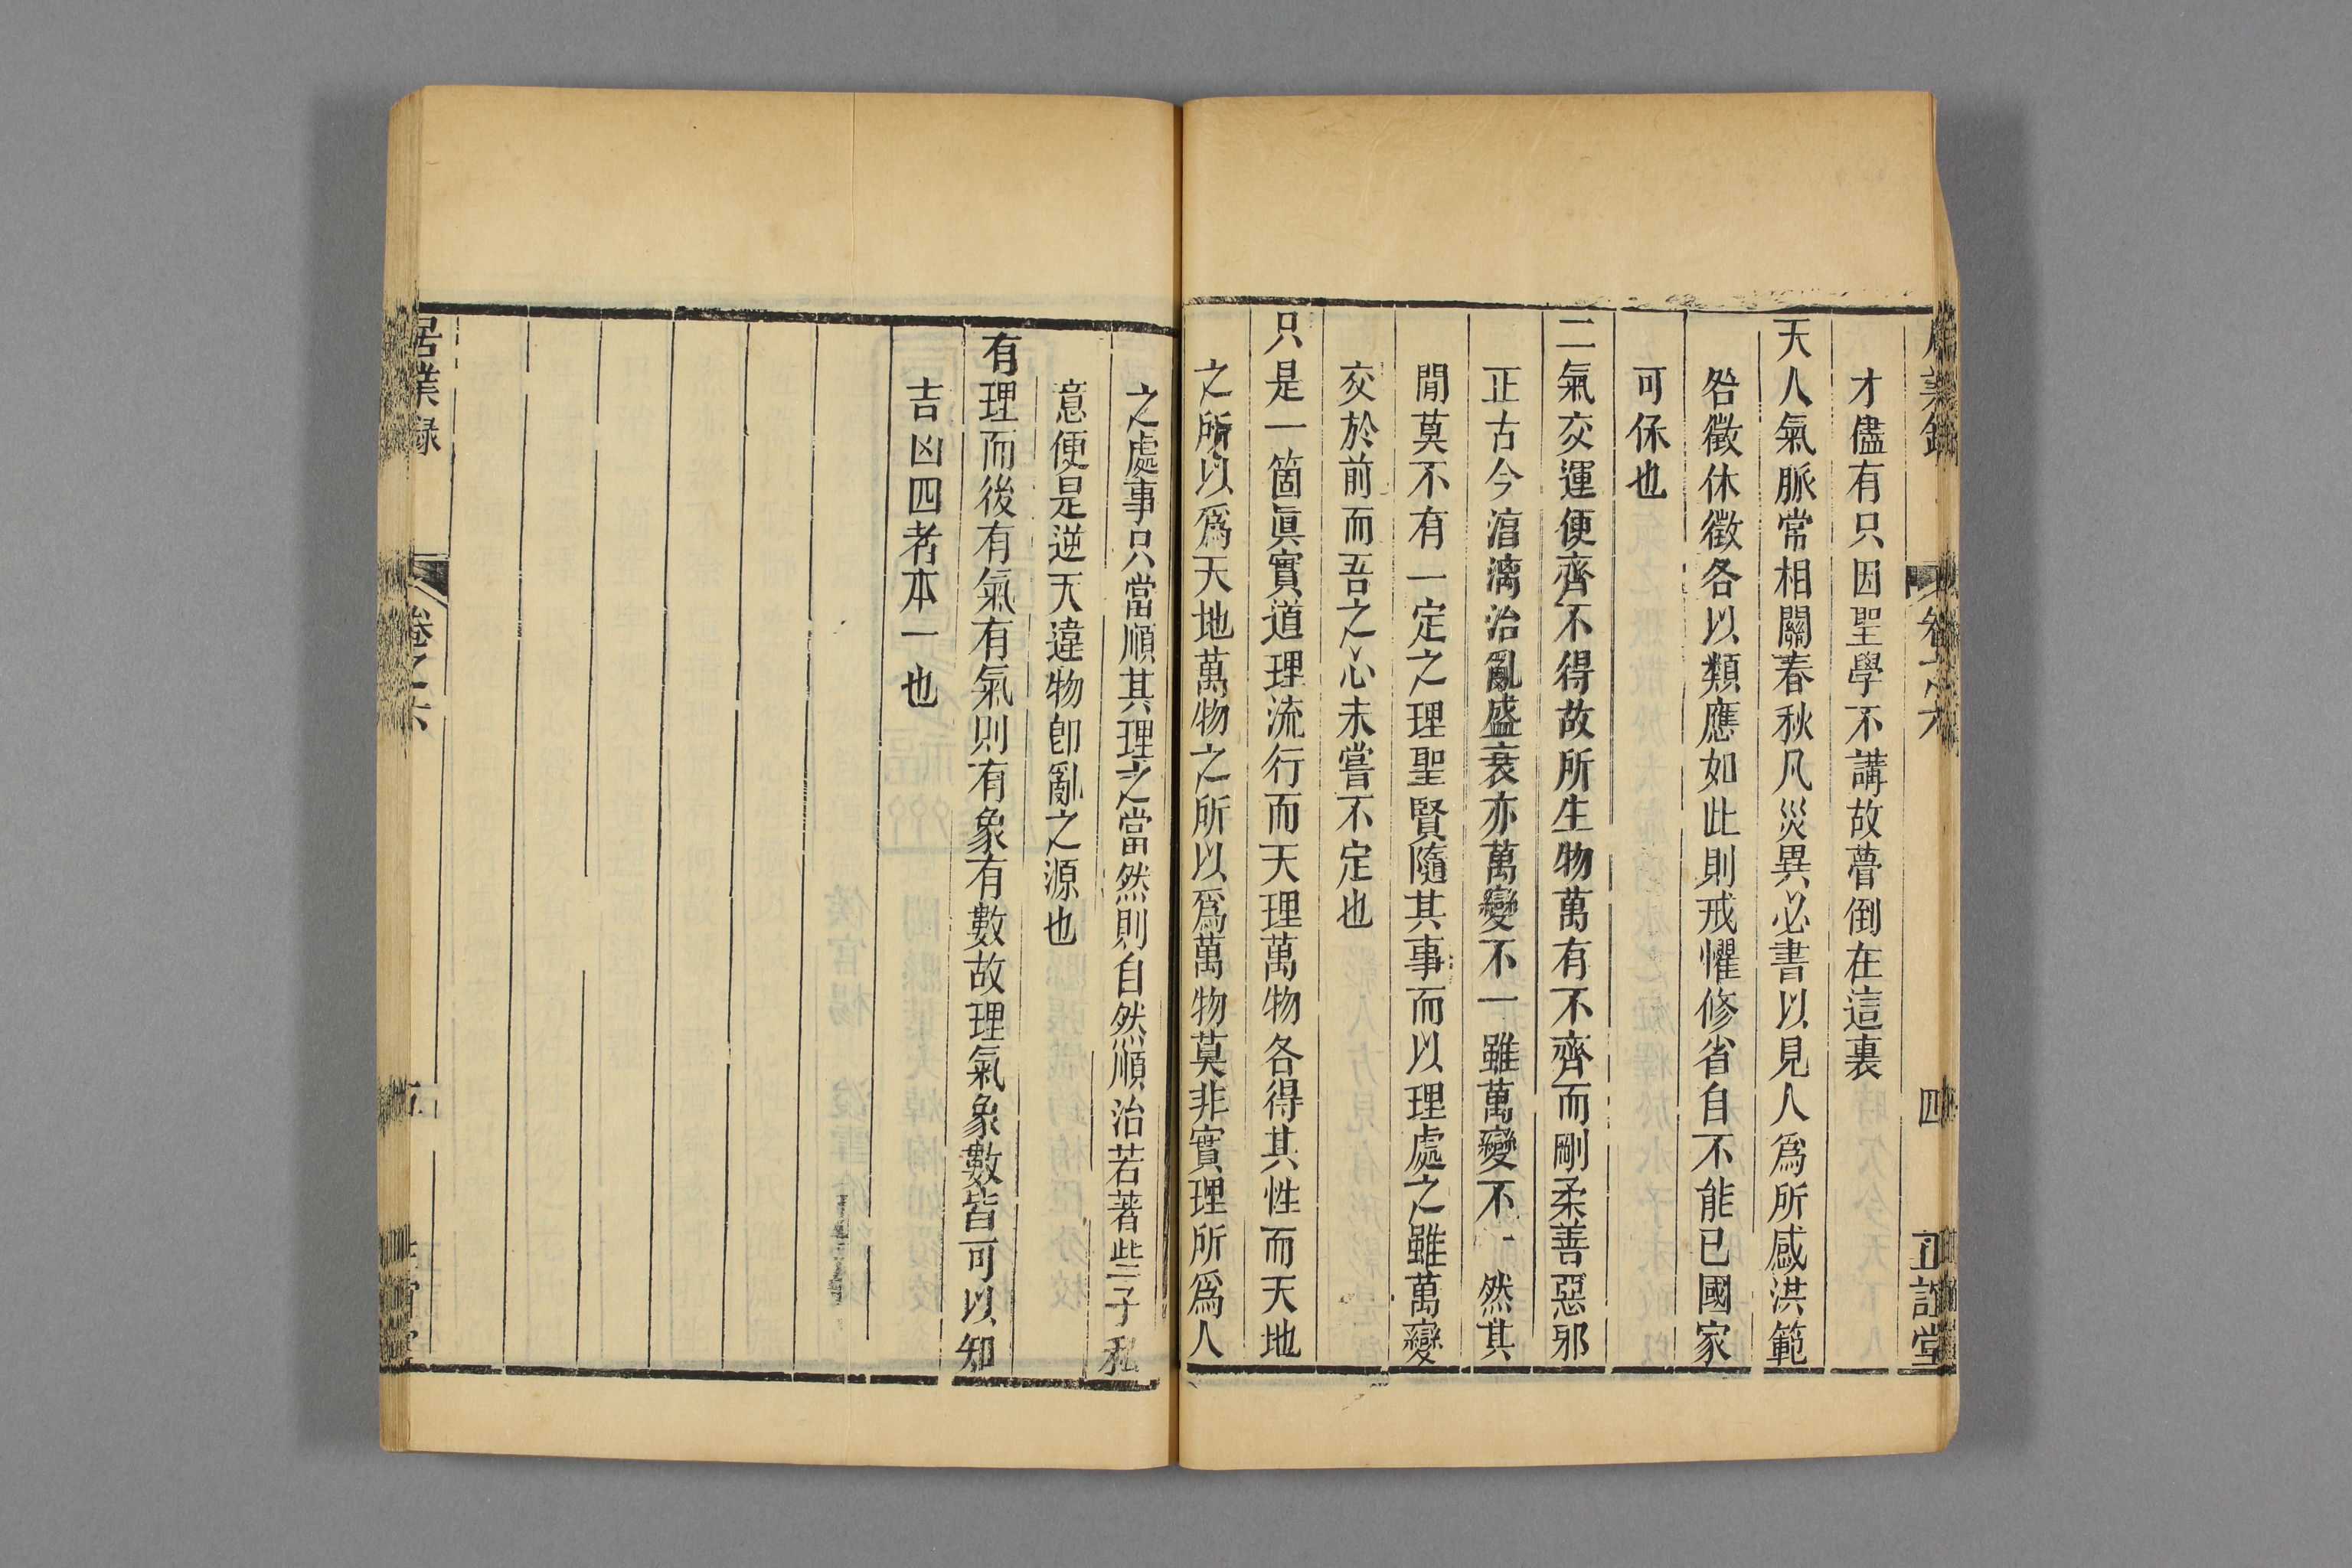 才儘有只因聖學不講故瞢倒在這裏
天人氣脈常相關春秋凡災異必書以見人爲所感洪範
咎徵休徵各以類應如此則戒懼修省自不能已國家
可保也
二氣交運便齊不得故所生物萬有不齊而剛柔善惡邪
正古今淳漓治亂盛衰亦萬變不一雖萬變不一然其
閒莫不有一定之理聖賢隨其事而以理處之雖萬變
交於前而吾之心未嘗不定也
只是一箇眞實道理流行而天理萬物各得其性而天地
之所以爲天地萬物之所以爲萬物莫非實理所爲人
之處事只當順其理之當然則自然順治若著些子私
意便是逆天違物卽亂之源也
有理而後有氣有氣則有象有數故理氣象數皆可以知
吉凶四者本一也
居業錄
卷之六
五
四
正誼堂